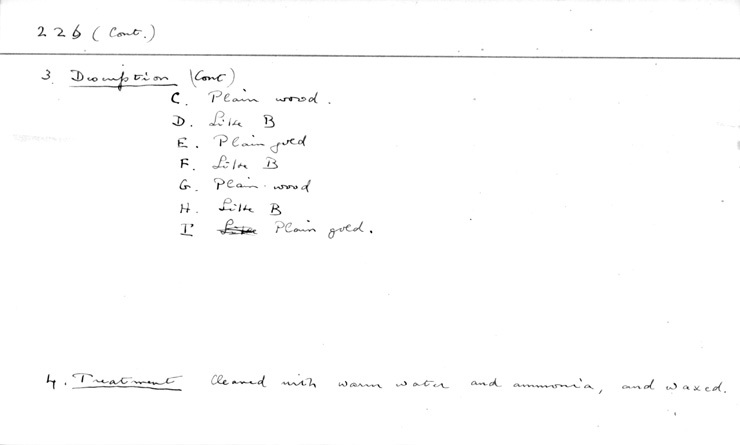 226 (Cont.)
3. Description (Cont)
C. Plain wood.
D. Like B
E. Plain gold
F. Like B
G. Plain wood
H. Like B
I Like Plain gold.
4. Treatment Cleaned with warm water and ammonia, and waxed.